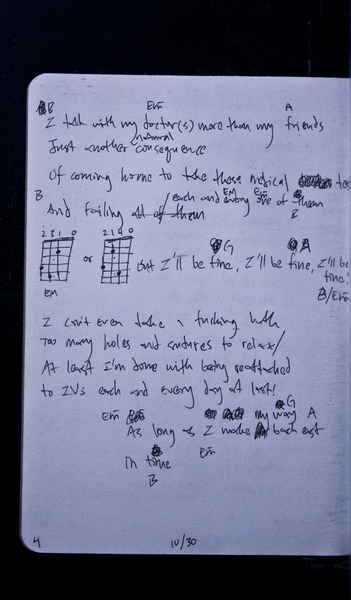 B Em A
I talk with my doctor(s) more than my friends
Just another natural consequence
Of coming home to take these medical tests
B each and every one of them
EM Em B
And failing all of them
2 3 1 0 2 1 4 0
G A
or but I'll be fine, I'll be fine, I'll be fine!
EM B/Em
I can't even take a fucking bath
Too many holes and sutures to relax/
At least I'm done with being reattached
to IVs each and every day at last!
Em G
my way A
As long as I make back east
In time Em
B
4 10/30